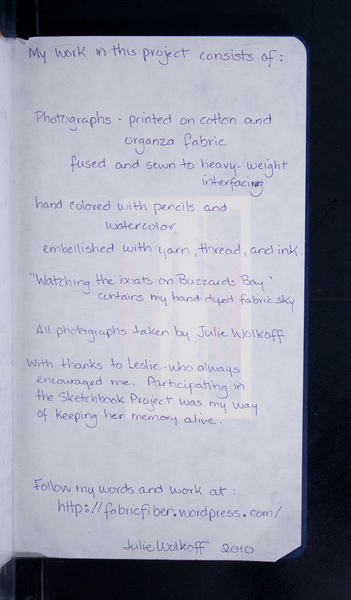 My work in this project consists of:
Photographs - printed on cotton and
organza fabric
fused and sewn to heavy-weight
interfacing
hand colored with pencils and
watercolor
embellished with yarn, thread, and ink.
"Watching the boats on Buzzards Bay"
contains my hand-dyed fabric sky
All photographs taken by Julie Wolkoff
With thanks to Leslie - who always
encouraged me. Participating in
the Sketchbook Project was my way
of keeping her memory alive.
Follow my words and work at:
http://fabricfiber.wordpress.com/
Julie Wolkoff 2010